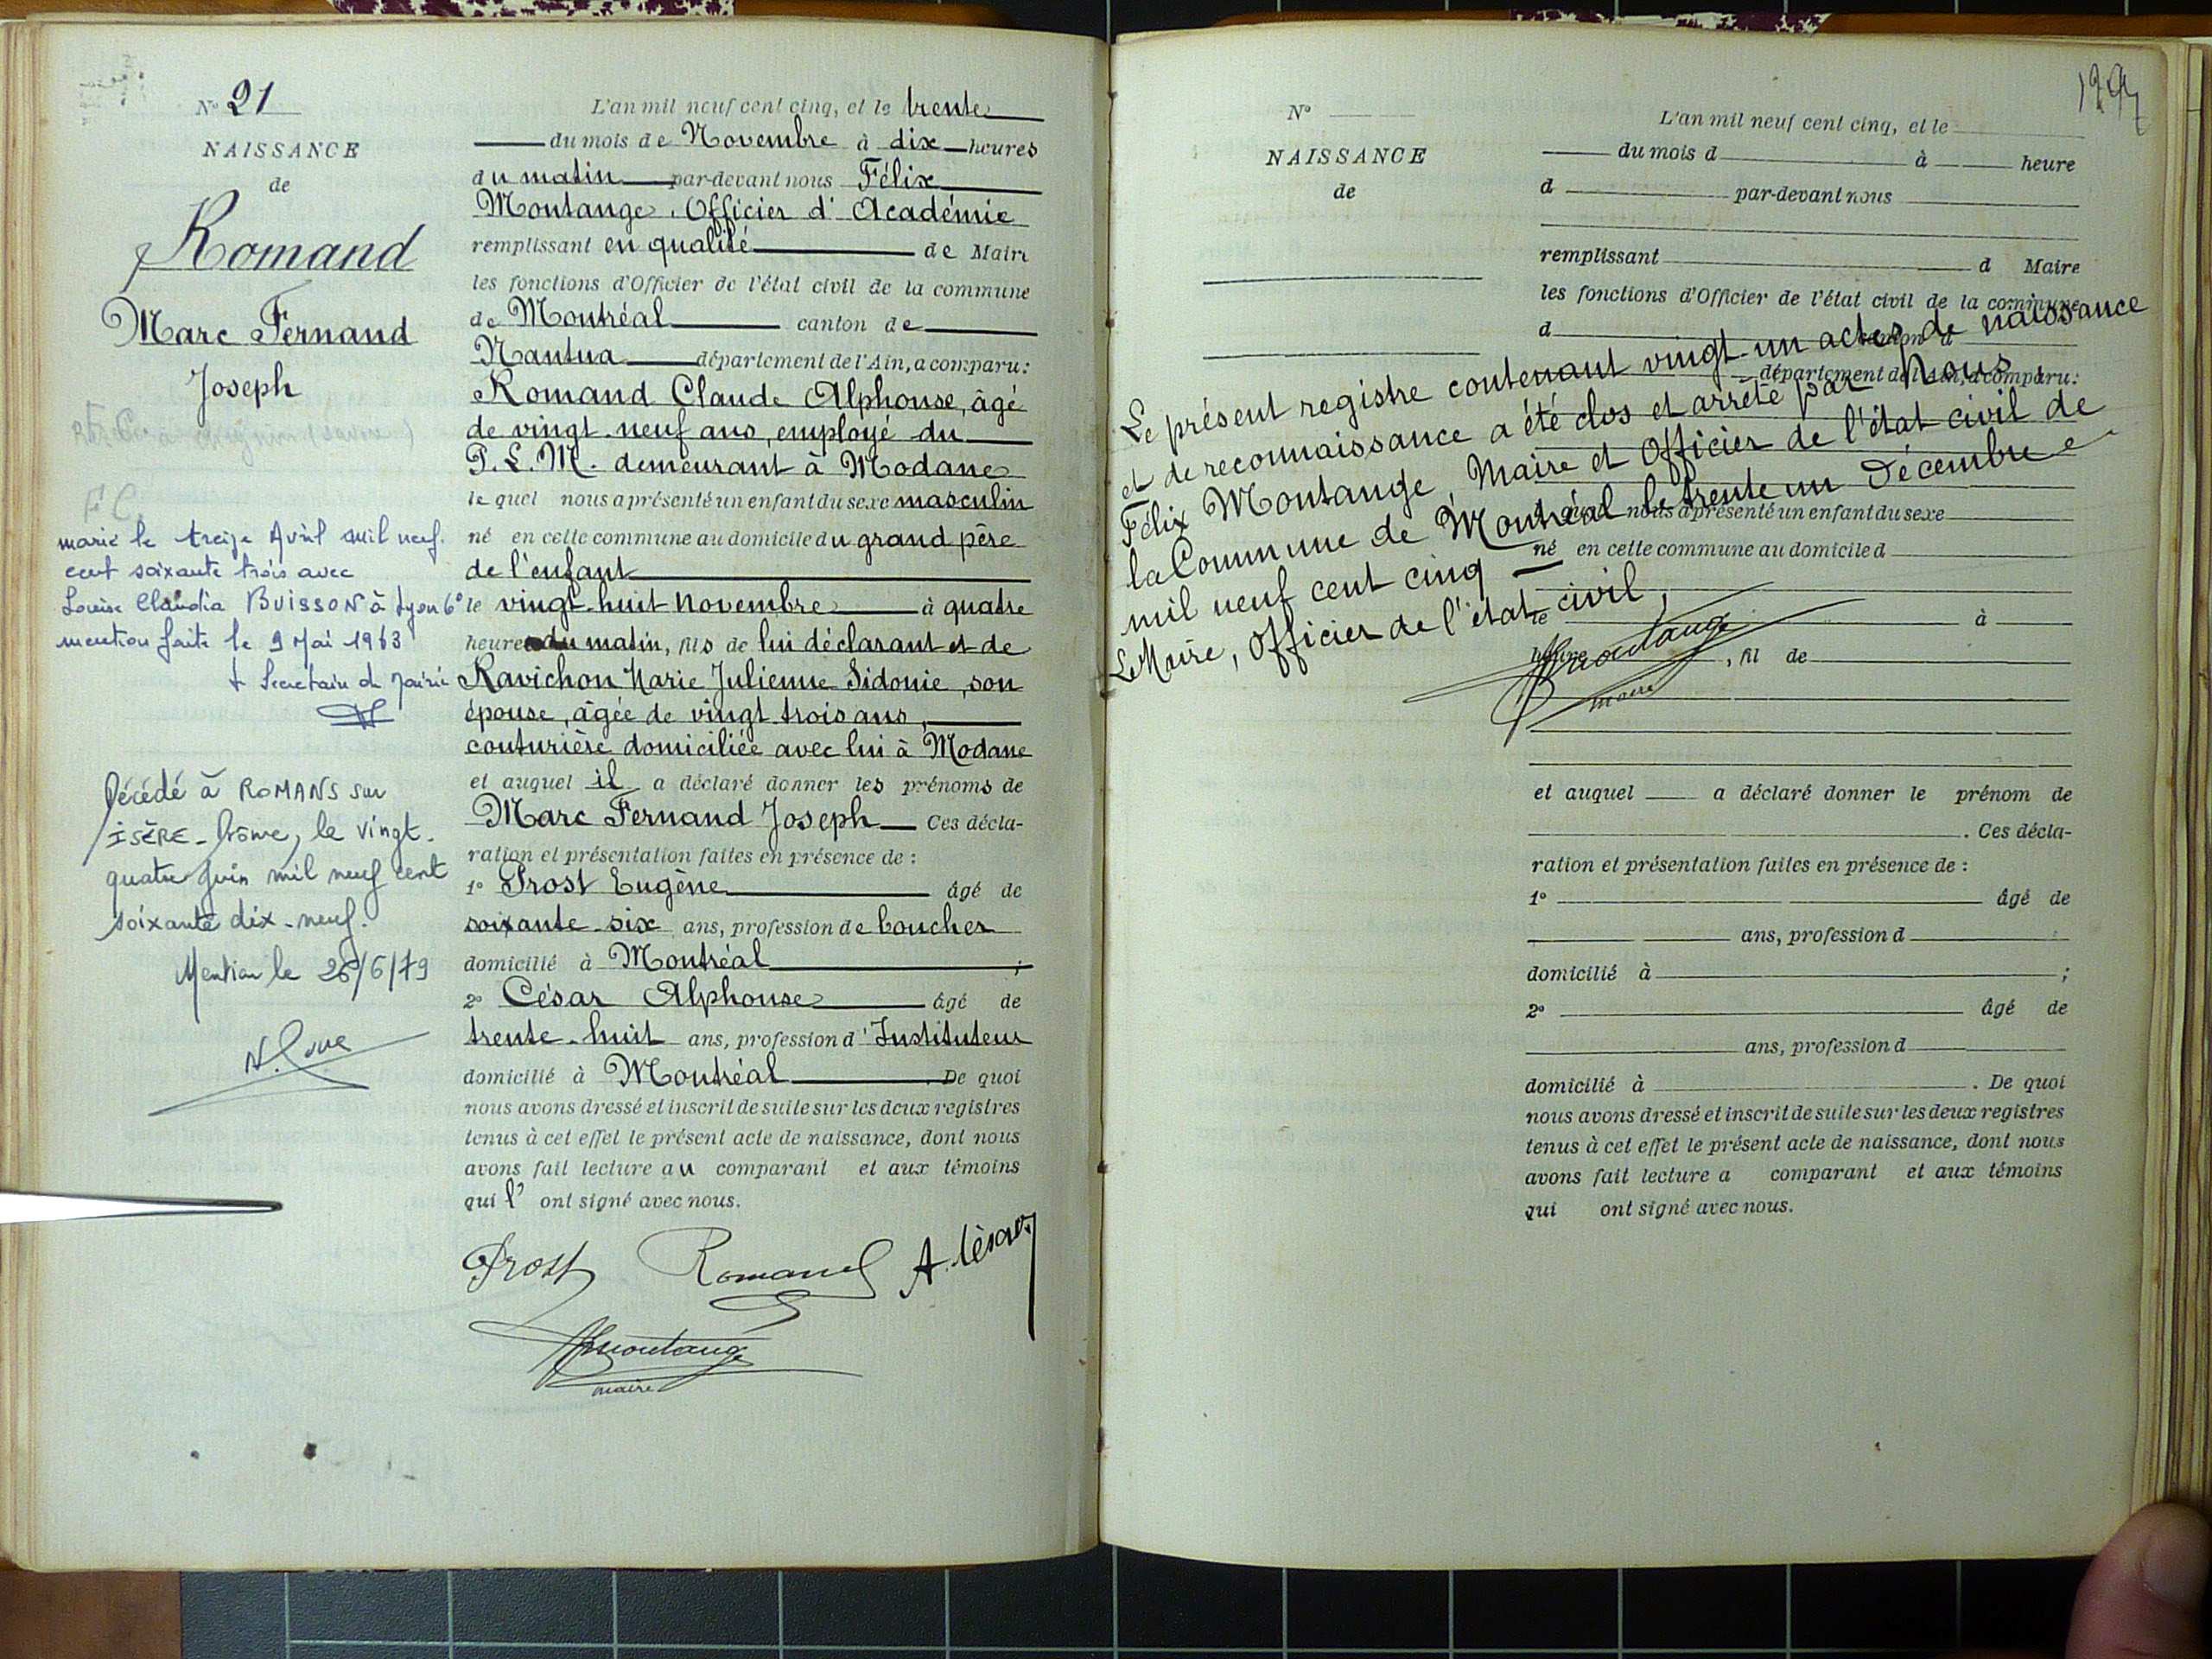 N° 21
NAISSANCE
de
Romand
Marc Fernand
Joseph
marié le treize Avril mil neuf
cent soixante trois avec
Louise Claudia BUISSON à Lyon 6e
mention faite le 9 Mai 1963
Secrétaire de Mairie
Décédé à ROMANS sur
ISÈRE - Drôme, le vingt-
quatre Juin mil neuf cent
soixante dix-neuf.
Mention le 26/6/79
L'an mil neuf cent cinq, et le trente
du mois de Novembre à dix heures
du matin par-devant nous Félix
Montange, Officier d'Académie
remplissant en qualité de Maire
les fonctions d'Officier de l'état civil de la commune
de Montréal canton de
Nantua département de l'Ain, a comparu:
Romand Claude Alphonse, âgé
de vingt-neuf ans, employé du
P.L.M. demeurant à Modane
le quel nous a présenté un enfant du sexe masculin
né en cette commune au domicile du grand père
de l'enfant
le vingt-huit Novembre à quatre
heures du matin, fils de lui déclarant et de
Ravichon Marie Julienne Sidonie, son
épouse, âgée de vingt trois ans,
couturière domiciliée avec lui à Modane
et auquel il a déclaré donner les prénoms de
Marc Fernand Joseph Ces décla-
ration et présentation faites en présence de :
1° Prost Eugène âgé de
soixante-six ans, profession de boucher
domicilié à Montréal ;
2° César Alphonse âgé de
trente-huit ans, profession d'Instituteur
domicilié à Montréal. De quoi
nous avons dressé et inscrit de suite sur les deux registres
tenus à cet effet le présent acte de naissance, dont nous
avons fait lecture au comparant et aux témoins
qui l' ont signé avec nous.
Prost Romand A. César
Montange
maire
N°
NAISSANCE
de
L'an mil neuf cent cinq, et le
du mois d à heure
d par-devant nous
remplissant d Maire
les fonctions d'Officier de l'état civil de la commune
d canton d
département de l'Ain, a comparu:
Le présent registre contenant vingt-un actes de naissance
et de reconnaissance a été clos et arrêté par Nous
Félix Montange Maire et Officier de l'état civil de
la Commune de Montréal le trente un Décembre
mil neuf cent cinq
Le Maire, Officier de l'état civil,
Montange
maire
nous a présenté un enfant du sexe
né en cette commune au domicile d
le à
heure , fil de
et auquel a déclaré donner le prénom de
. Ces décla-
ration et présentation faites en présence de :
1° âgé de
ans, profession d
domicilié à ;
2° âgé de
ans, profession d
domicilié à . De quoi
nous avons dressé et inscrit de suite sur les deux registres
tenus à cet effet le présent acte de naissance, dont nous
avons fait lecture a comparant et aux témoins
qui ont signé avec nous.